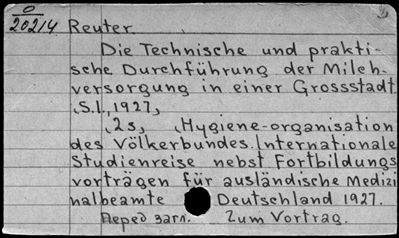 0
20214 Reuter.
Die Technische und prakti-
sche Durchführung der Milch-
versorgung in einer Grossstadt.
S.l., 1927,
2s, Hygiene-organisation
des Völkerbundes. Internationale
Studienreise nebst Fortbildungs
vorträgen für ausländische Medizi
nalbeamte Deutschland 1927.
Перед загл. Zum Vortrag.